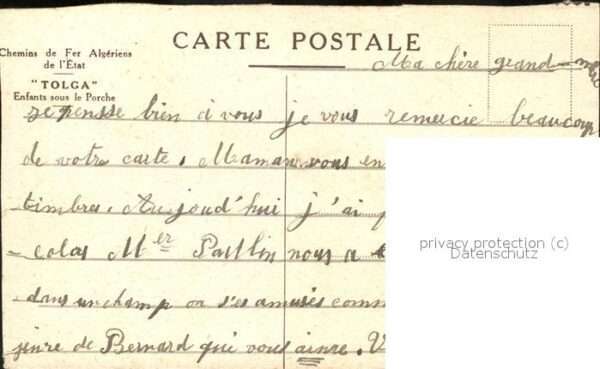 CARTE POSTALE
Chemins de Fer Algériens
de l'État
"TOLGA"
Enfants sous le Porche
Ma chère grand-mère
je pensse bien à vous je vous remercie beaucoup
de votre carte, Maman vous en
timbres. Aujoud'hui j'ai
colas Mer nous a
dans un champ on s'es amusés comm
jenre de Bernard qui vous aime. V
privacy protection (c)
Datenschutz